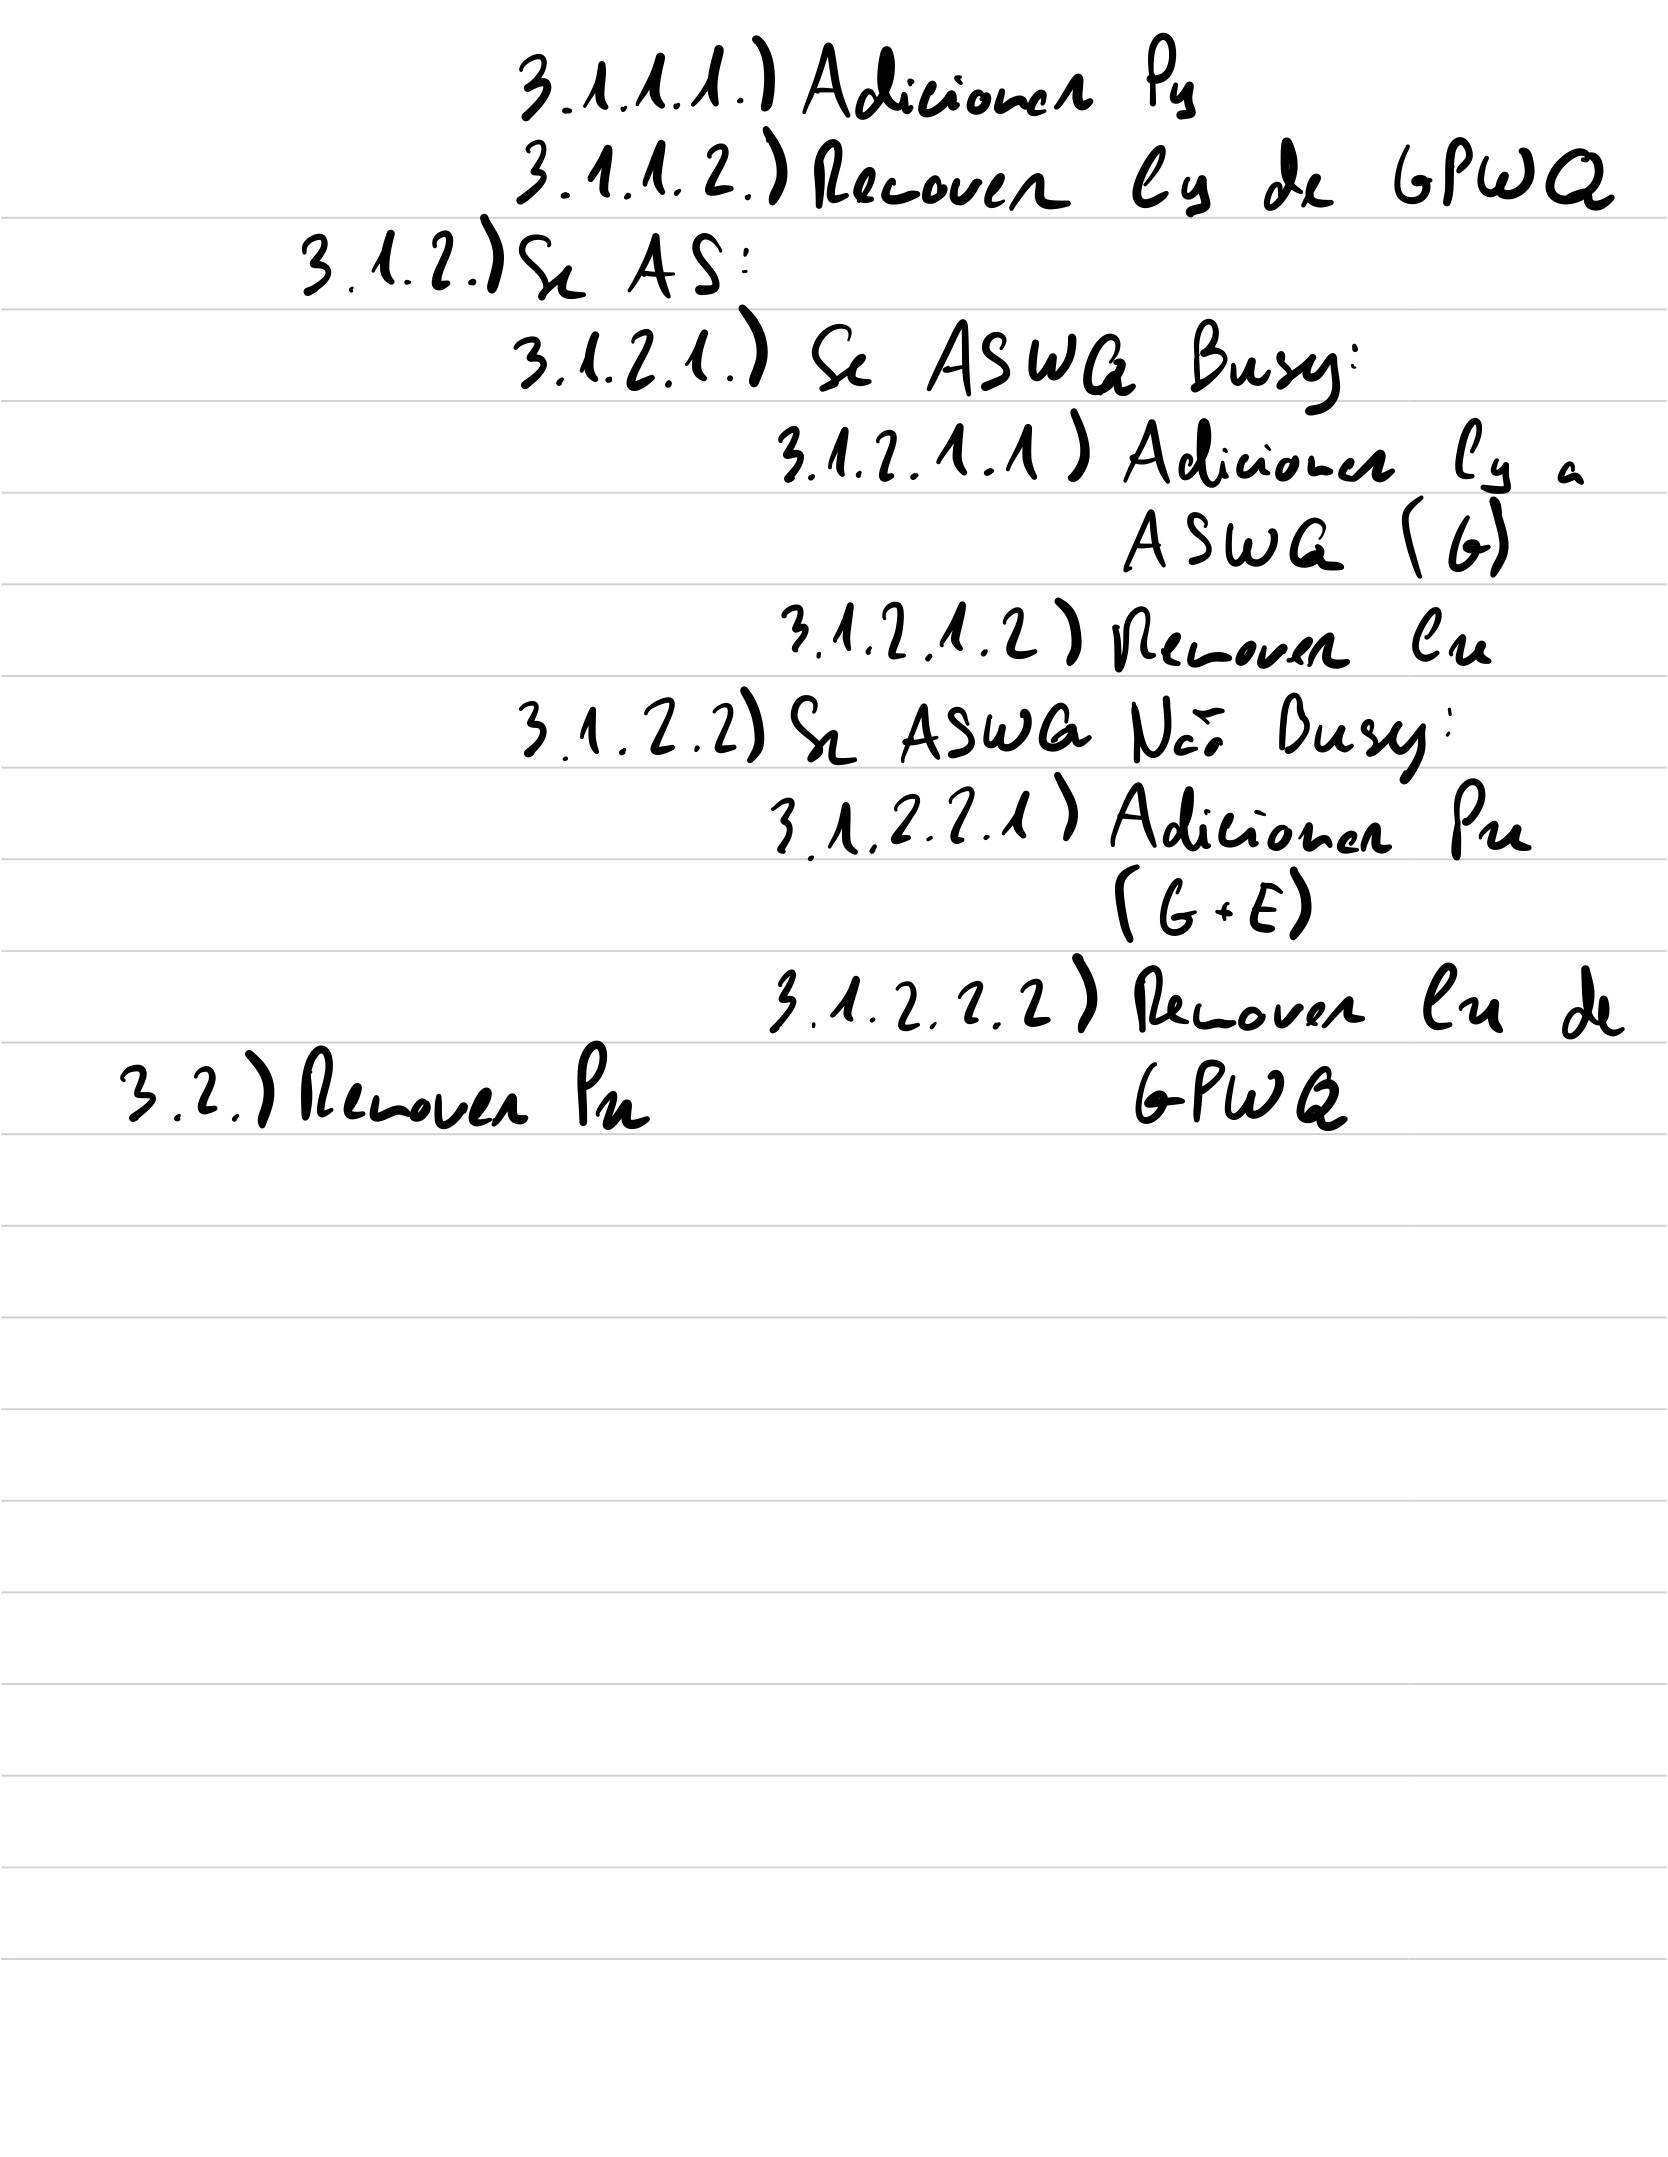 3.1.1.1.) Adicionar Py
3.1.1.2.) Remover Cy de GPWQ
3.1.2.) Se AS:
3.1.2.1.) Se ASWQ Busy:
3.1.2.1.1) Adicionar Cy a
ASWQ (G)
3.1.2.1.2) Remover Cx
3.1.2.2) Se ASWQ Não Busy:
3.1.2.2.1) Adicionar Px
(G+E)
3.1.2.2.2) Remover Cx de
GPWQ
3.2.) Remover Px